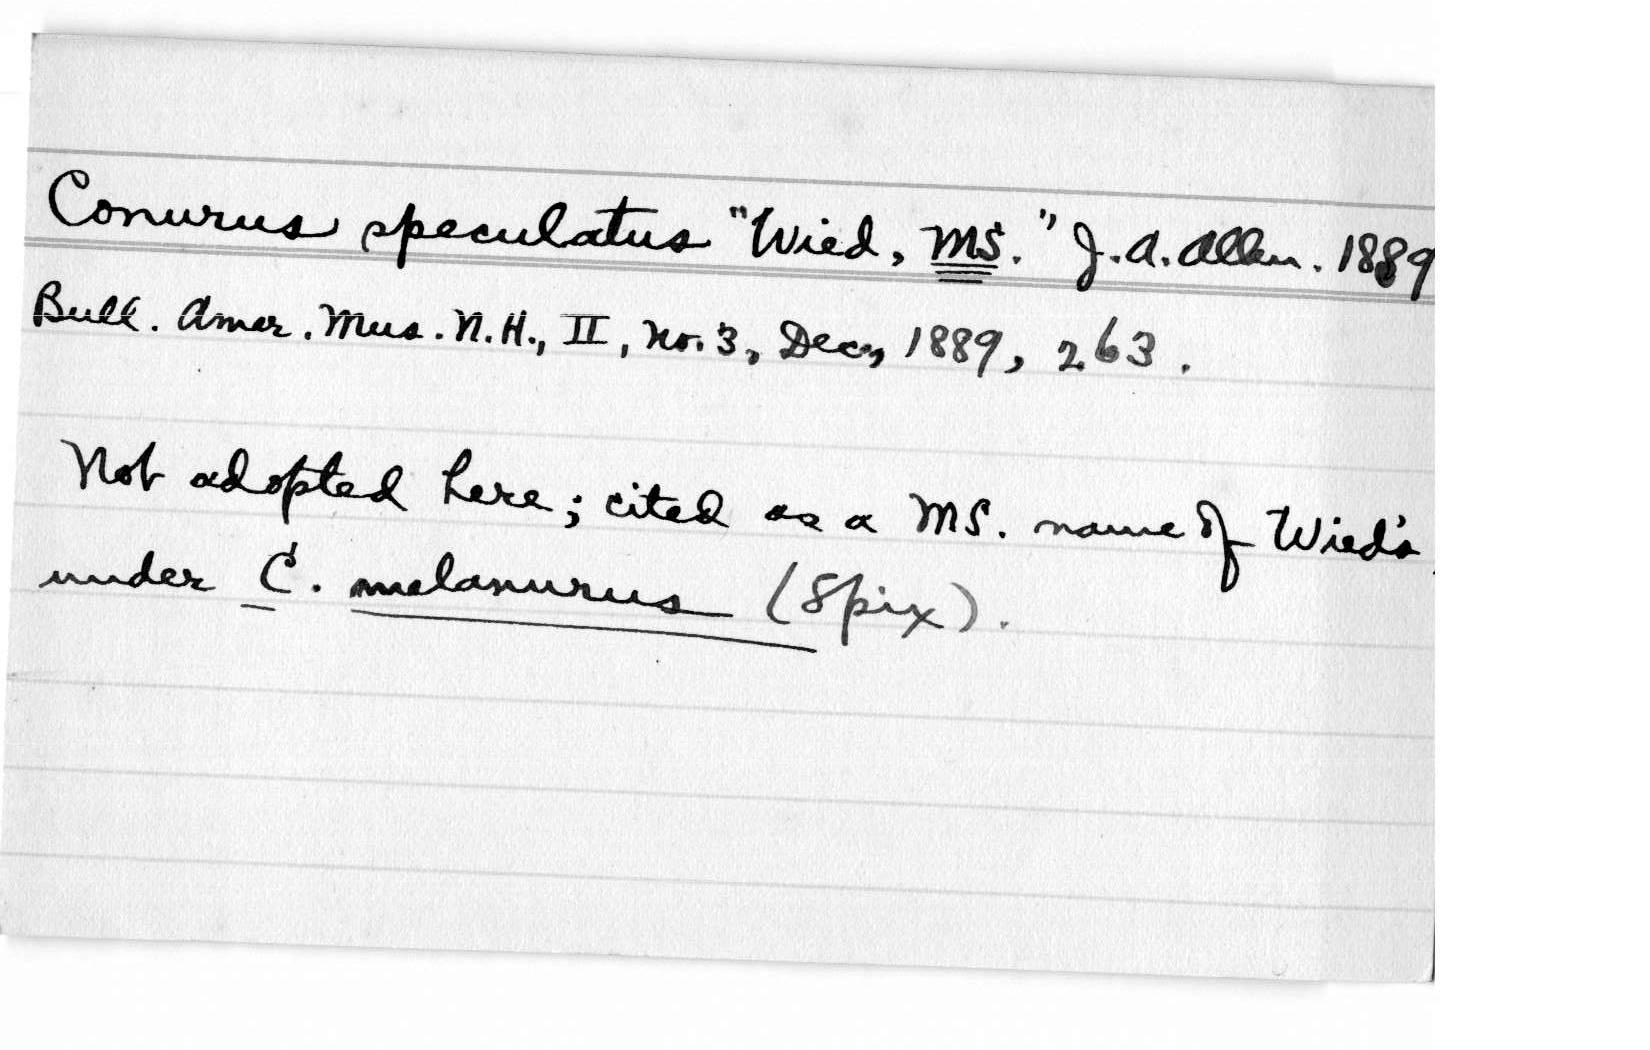 Conurus speculatus "Wied, MS." J.A. Allen. 1889
Bull. Amer. Mus. N.H., II, no. 3, Dec, 1889, 263.
Not adopted here; cited as a MS. name of Wied's
under C. melanurus (Spix).